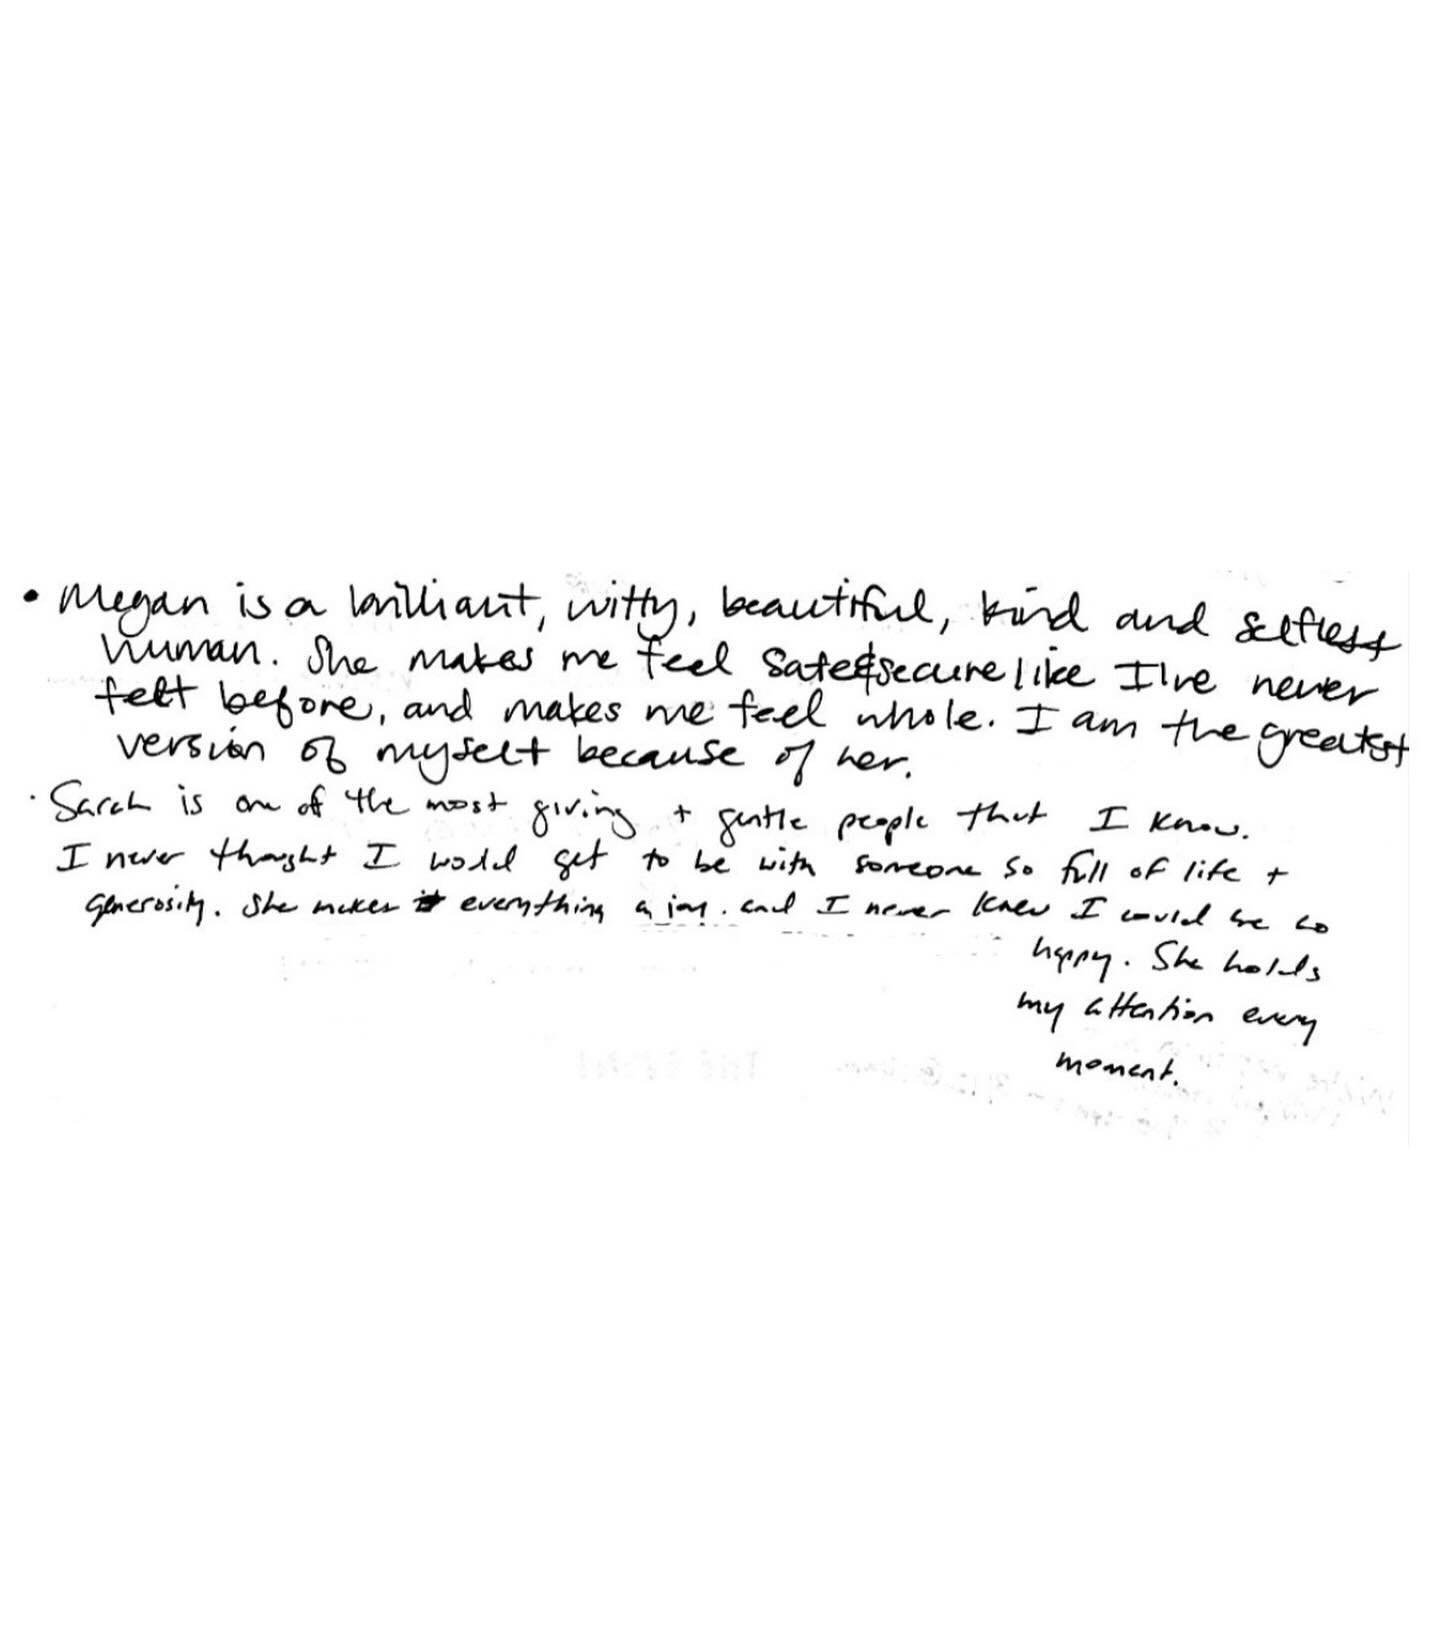 • Megan is a brilliant, witty, beautiful, kind and selfless
human. She makes me feel safe&secure like I've never
felt before, and makes me feel whole. I am the greatest
version of myself because of her.
· Sarah is one of the most giving + gentle people that I know.
I never thought I would get to be with someone so full of life +
generosity. She makes everything a joy. and I never knew I could be so
happy. She holds
my attention every
moment.